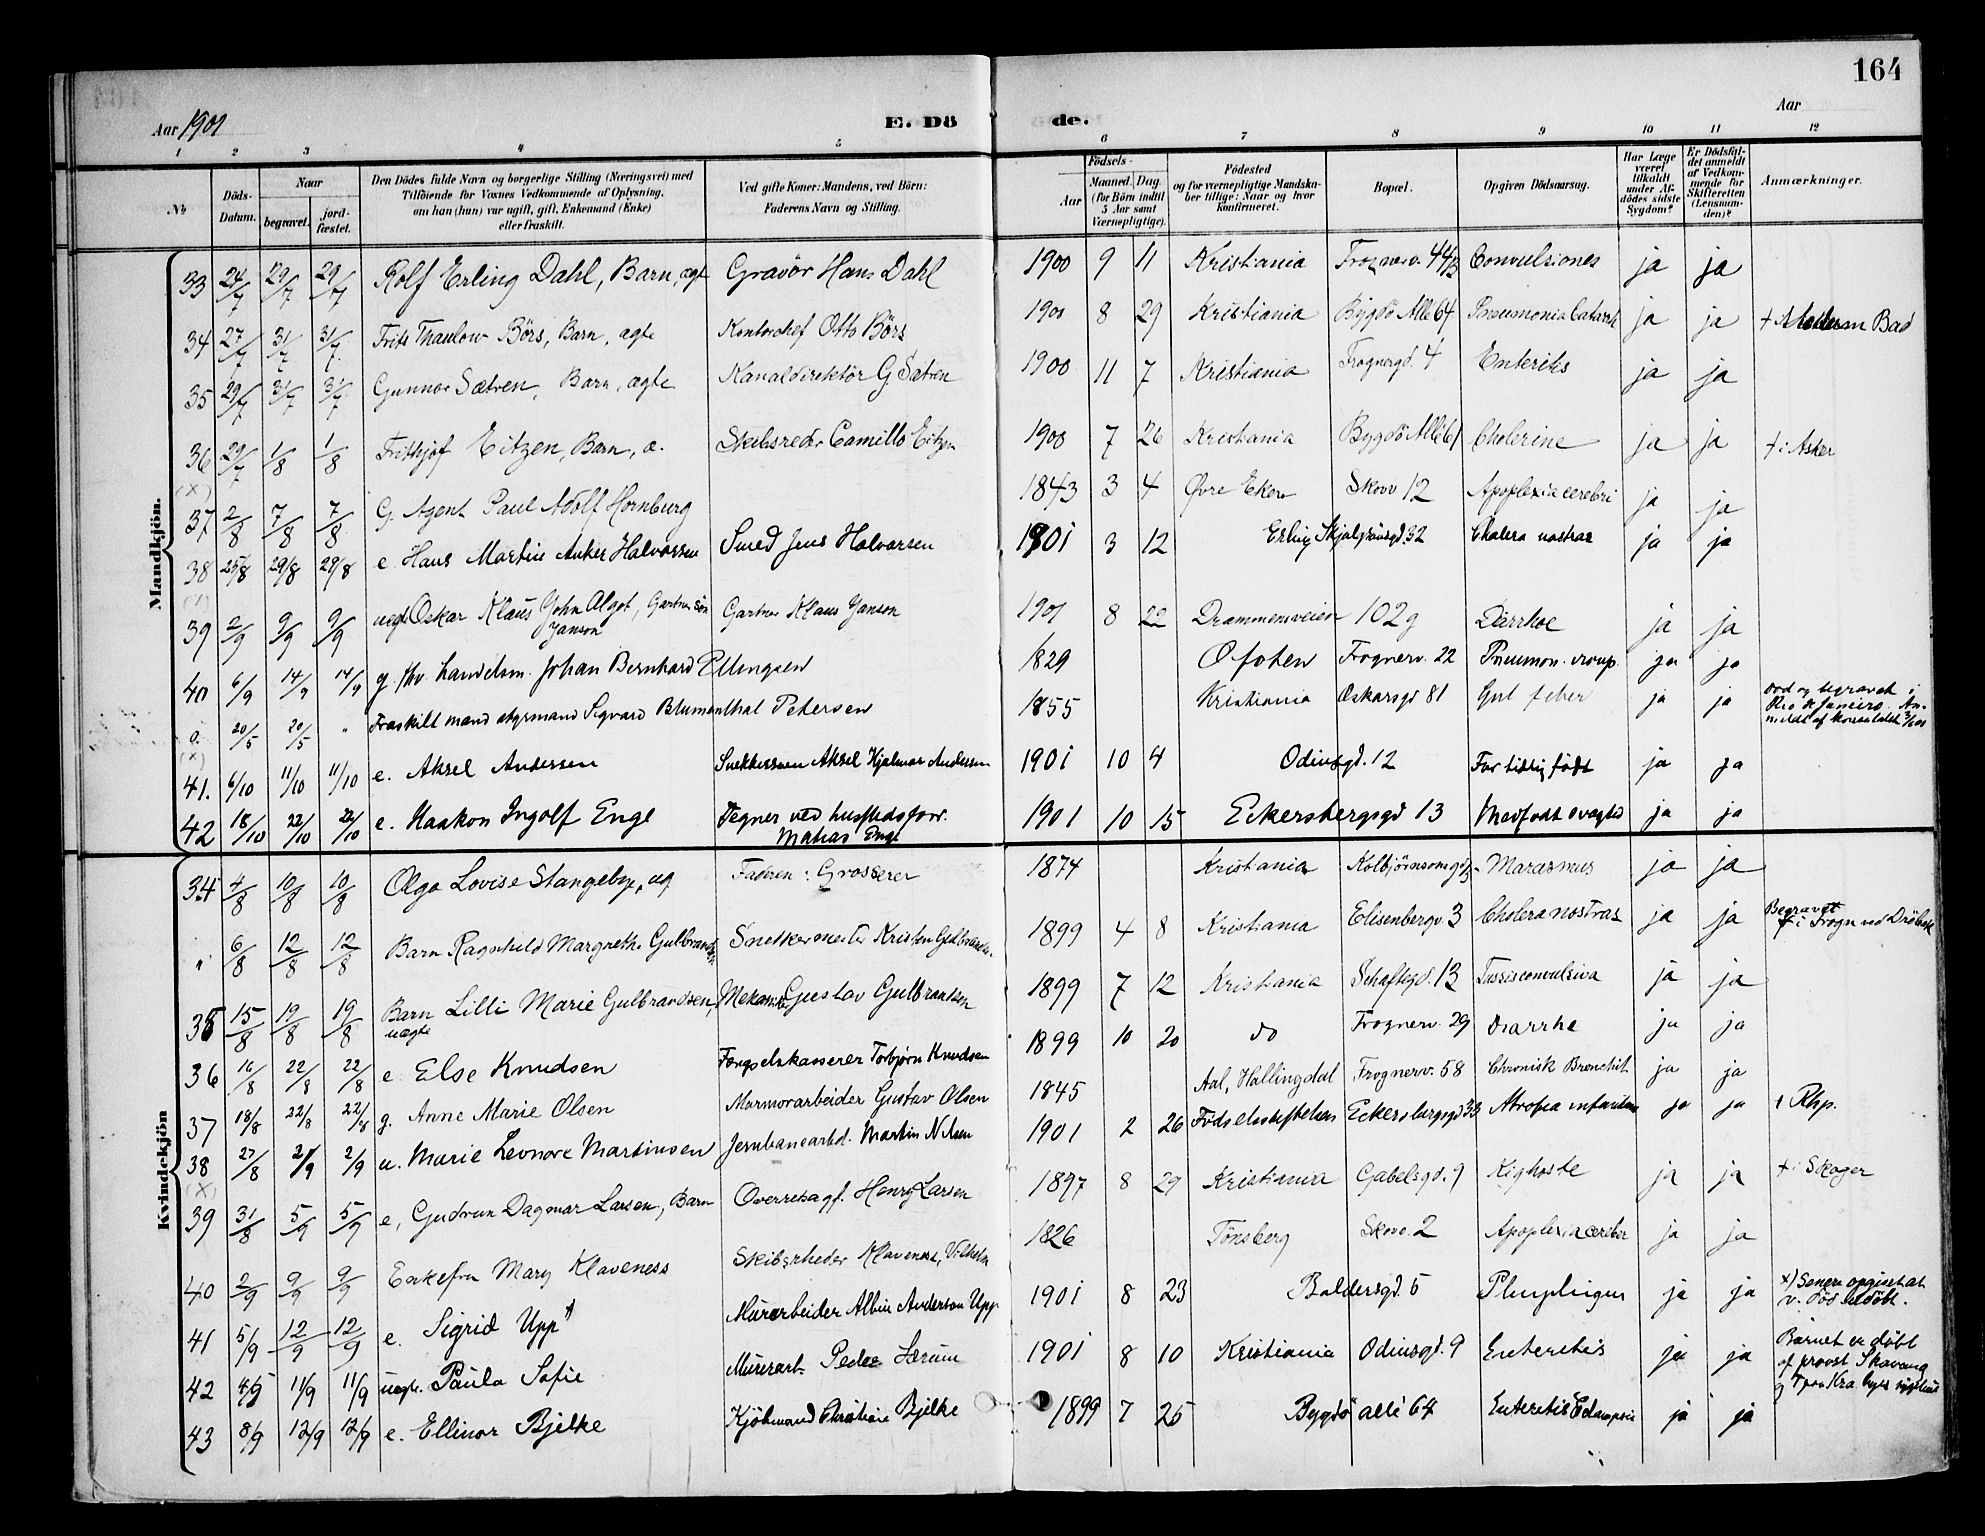 164
Aar 1901
E. Dö
de.
Aar
1 2 3 4 5 6 7 8 9 10 11 12
No
Döds-Datum.
Naar
begravet.
jordfæstet.
Den Dödes fulde Navn og borgerlige Stilling (Næringsvei) med
Tilföiende for Voxnes Vedkommende af Oplysning,
om han (hun) var ugift, gift, Enkemand (Enke)
eller fraskilt.
Ved gifte Koner: Mandens, ved Börn:
Faderens Navn og Stilling.
Födsels-
Aar
Maaned. Dag
(for Börn indtil
5 Aar samt
Værnepligtige).
Födested
og for værnepligtige Mandska-
ber tillige: Naar og hvor
konfirmeret.
Bopæl.
Opgiven Dödsaarsag.
Har Læge
været
tilkaldt
under Af-
dödes sidste
Sygdom?
Er Dödsfal-
det anmeldt
af Vedkom-
mende for
Skifteretten
(Lensman-
den)?
Anmærkninger.
Mandkjön.
33 24/7 29/7 29/7 Rolf Erling Dahl, Barn, ægt Gravör Hans Dahl 1900 9 11 Kristiania Frognerv. 44B Convulsiones ja ja
34 27/7 31/7 31/7 Frits Thaulow Börs, Barn, ægte Kontorchef Otto Börs 1901 8 29 Kristiania Bygdö Allé 64 Pneumonia Catarrh ja ja † Bad
35 29/7 31/7 31/7 Gunnar Sætren, Barn, ægte Kanaldirektör G Sætren 1900 11 7 Kristiania Frognergd. 4 Enteritis ja ja
36 29/7 1/8 1/8 Frithjof Eitzen, Barn, æ. Skibsreder Camillo Eitzen 1900 7 26 Kristiania Bygdö Allé 61 Cholerine ja ja † i Asker
(x)
37 2/8 7/8 7/8 G. Agent Paul Adolf Hornburg 1843 3 4 Øvre Eker Skovv 12 Apoplexia cerebri ja ja
38 25/8 29/8 29/8 e. Hans Martin Anker Halvorsen Smed Jens Halvorsen 1901 3 12 Erling Skjalgsönsgd. 32 Cholera nostras ja ja
39 2/9 9/9 9/9 uægt. Oskar Klaus John Algot, Gartner sön Gartner Klaus Janson 1901 8 22 Drammensveien 102g Diarrhoe ja ja
Janson
40 6/9 14/9 14/9 g. fhv. handelsm. Johan Bernhard Ellingsen 1829 Ofoten Frognerv. 22 Pneumon. croup. ja ja
o. 20/5 20/5 " Fraskilt mand styrmand Sigvard Blumenthal Petersen 1855 Kristiania Oskarsgd 81 Gul feber ja ja Död og begravet i
Rio de Janeiro. An-
meldt af konsulatet
(x)
41. 6/10 11/10 11/10 e. Aksel Andersen Snekkersven Aksel Hjalmar Andersen 1901 10 4 Odinsgd. 12 For tidlig född ja ja
42 18/10 22/10 22/10 e. Haakon Ingolf Enge Tegner ved husflidsforr. 1901 10 15 Eckersbergsgd 13 Medfödt svaghed ja ja
Matias Enge
Kvindekjön
34 4/8 10/8 10/8 Olga Lovise Stangebye, ug Faderen: Grosserer 1874 Kristiania Kolbjörnsensgd Marasmus ja ja
" 6/8 12/8 12/8 Barn Ragnhild Margrethe Gulbrandsen Snekkermester Kristen Gulbrandsen 1899 4 8 Kristiania Elisenbergv 3 Cholera nostras ja ja Begravet
i Frogn ved Dröbak
35 15/8 19/8 19/8 Barn Lilli Marie Gulbrandsen, Mekaniker Gustav Gulbrandsen 1899 7 12 Kristiania Schaftegd. 13 Tussis convulsiva ja ja
uægte
36 16/8 22/8 22/8 e. Else Knudsen Fængselskasserer Torbjørn Knudsen 1899 10 20 do Frognerv. 29 Diarrhe ja ja
37 18/8 22/8 22/8 g. Anne Marie Olsen Marmorarbeider Gustav Olsen 1845 Aal, Hallingdal Frognerv. 58 Chronisk Bronchit ja ja
38 27/8 2/9 2/9 u. Marie Leonore Martinsen Jernbanearbd. Martin Nilsen 1901 2 26 Födselsstiftelsen Eckersbergsgd 33 Atrofia infantum ja ja i Rhp.
(x)
39 31/8 5/9 5/9 e, Gudrun Dagmar Larsen, Barn Overretssagf. Henry Larsen 1897 8 29 Kristiania Gabelsgd. 9 Kighoste ja ja † i Skoger
40 2/9 9/9 9/9 Enkefru Mary Klaveness Skibsrheder Klaveness, Vilhelm 1826 Tönsberg Skovv. 2 Apoplexia cerebri ja ja
41 5/9 12/9 12/9 e. Sigrid Upp x) Murarbeider Albin Anderson Upp. 1901 8 23 Baldersgd. 5 ja ja x) Senere opgivet at
v. död udöbt.
42 8/9 11/9 11/9 uægt. Paula Sofie Murerarb. Peder Lærum 1901 8 10 Kristiania Odinsgd. 9 Enteritis ja ja Barnet er döbt
af provst Skavang
43 8/9 12/9 12/9 e. Ellinor Bjelke Kjöbmand Christian Bjelke 1899 7 25 Bygdö allé 64 Enteritis Eclampsie ja ja